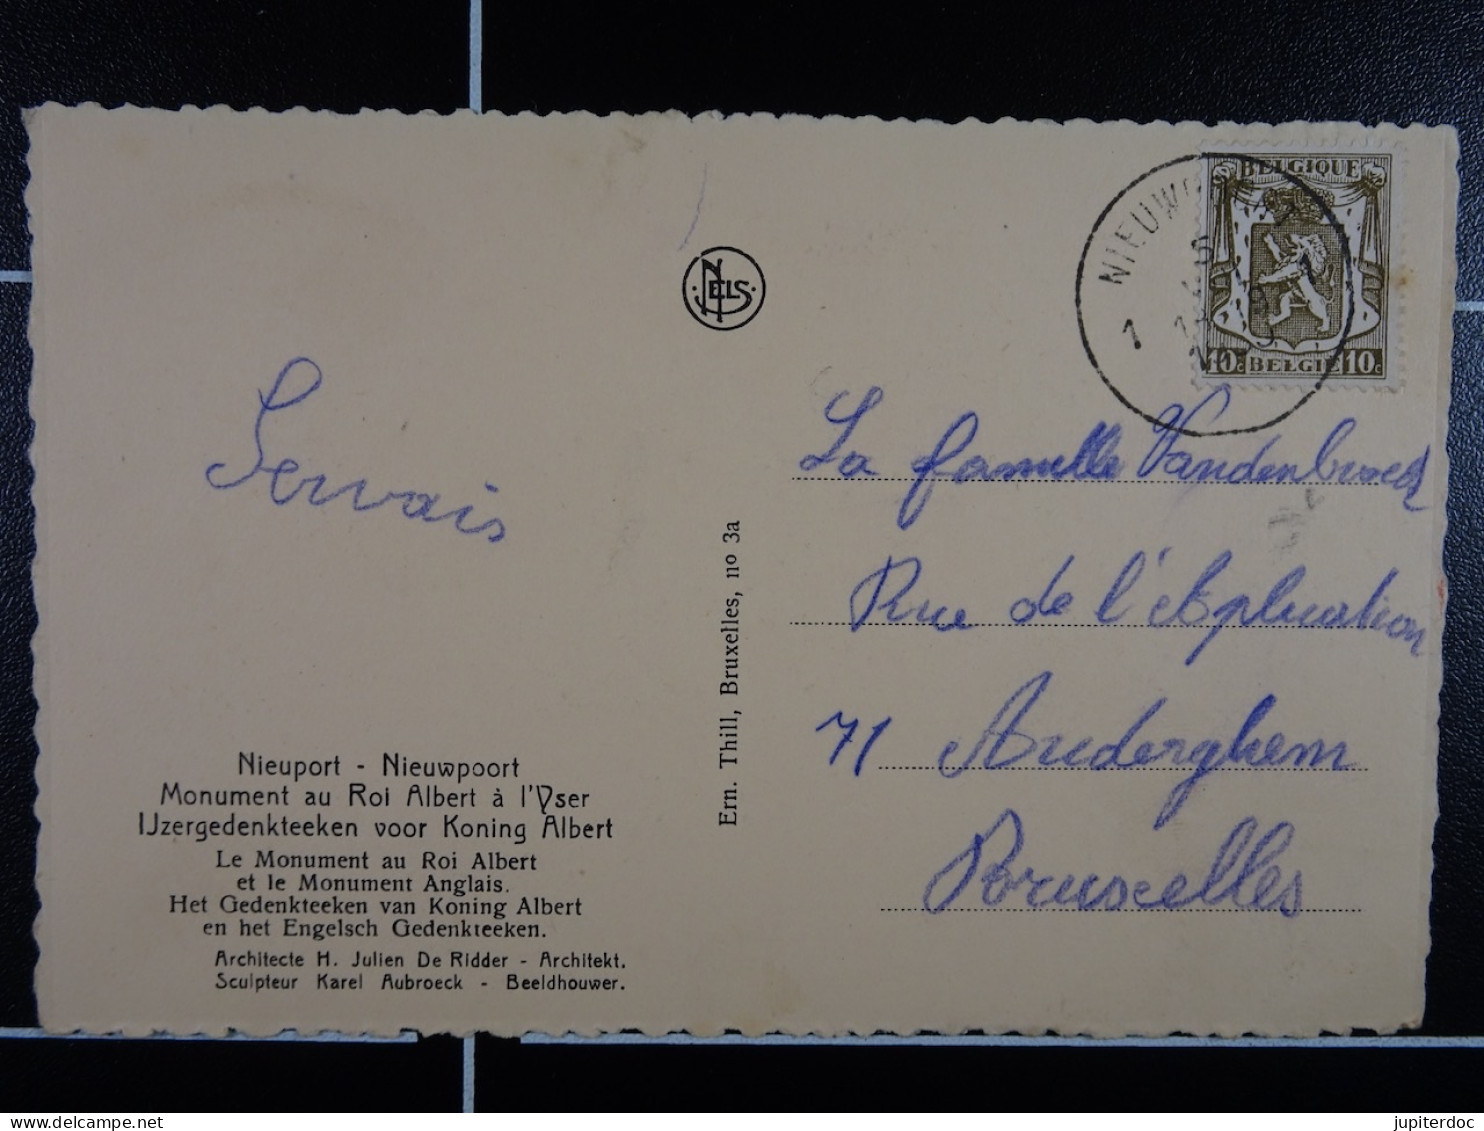 BELGIQUE
NIEUW
1
10c BELGIË 10c
NELS
Servais
La famille Vandenbroeck
Rue de l'Application
71 Auderghem
Bruxelles
Ern. Thill, Bruxelles, nº 3a
Nieuport - Nieuwpoort
Monument au Roi Albert à l'Yser
IJzergedenkteeken voor Koning Albert
Le Monument au Roi Albert
et le Monument Anglais.
Het Gedenkteeken van Koning Albert
en het Engelsch Gedenkteeken.
Architecte H. Julien De Ridder - Architekt.
Sculpteur Karel Aubroeck - Beeldhouwer.
jupiterdoc